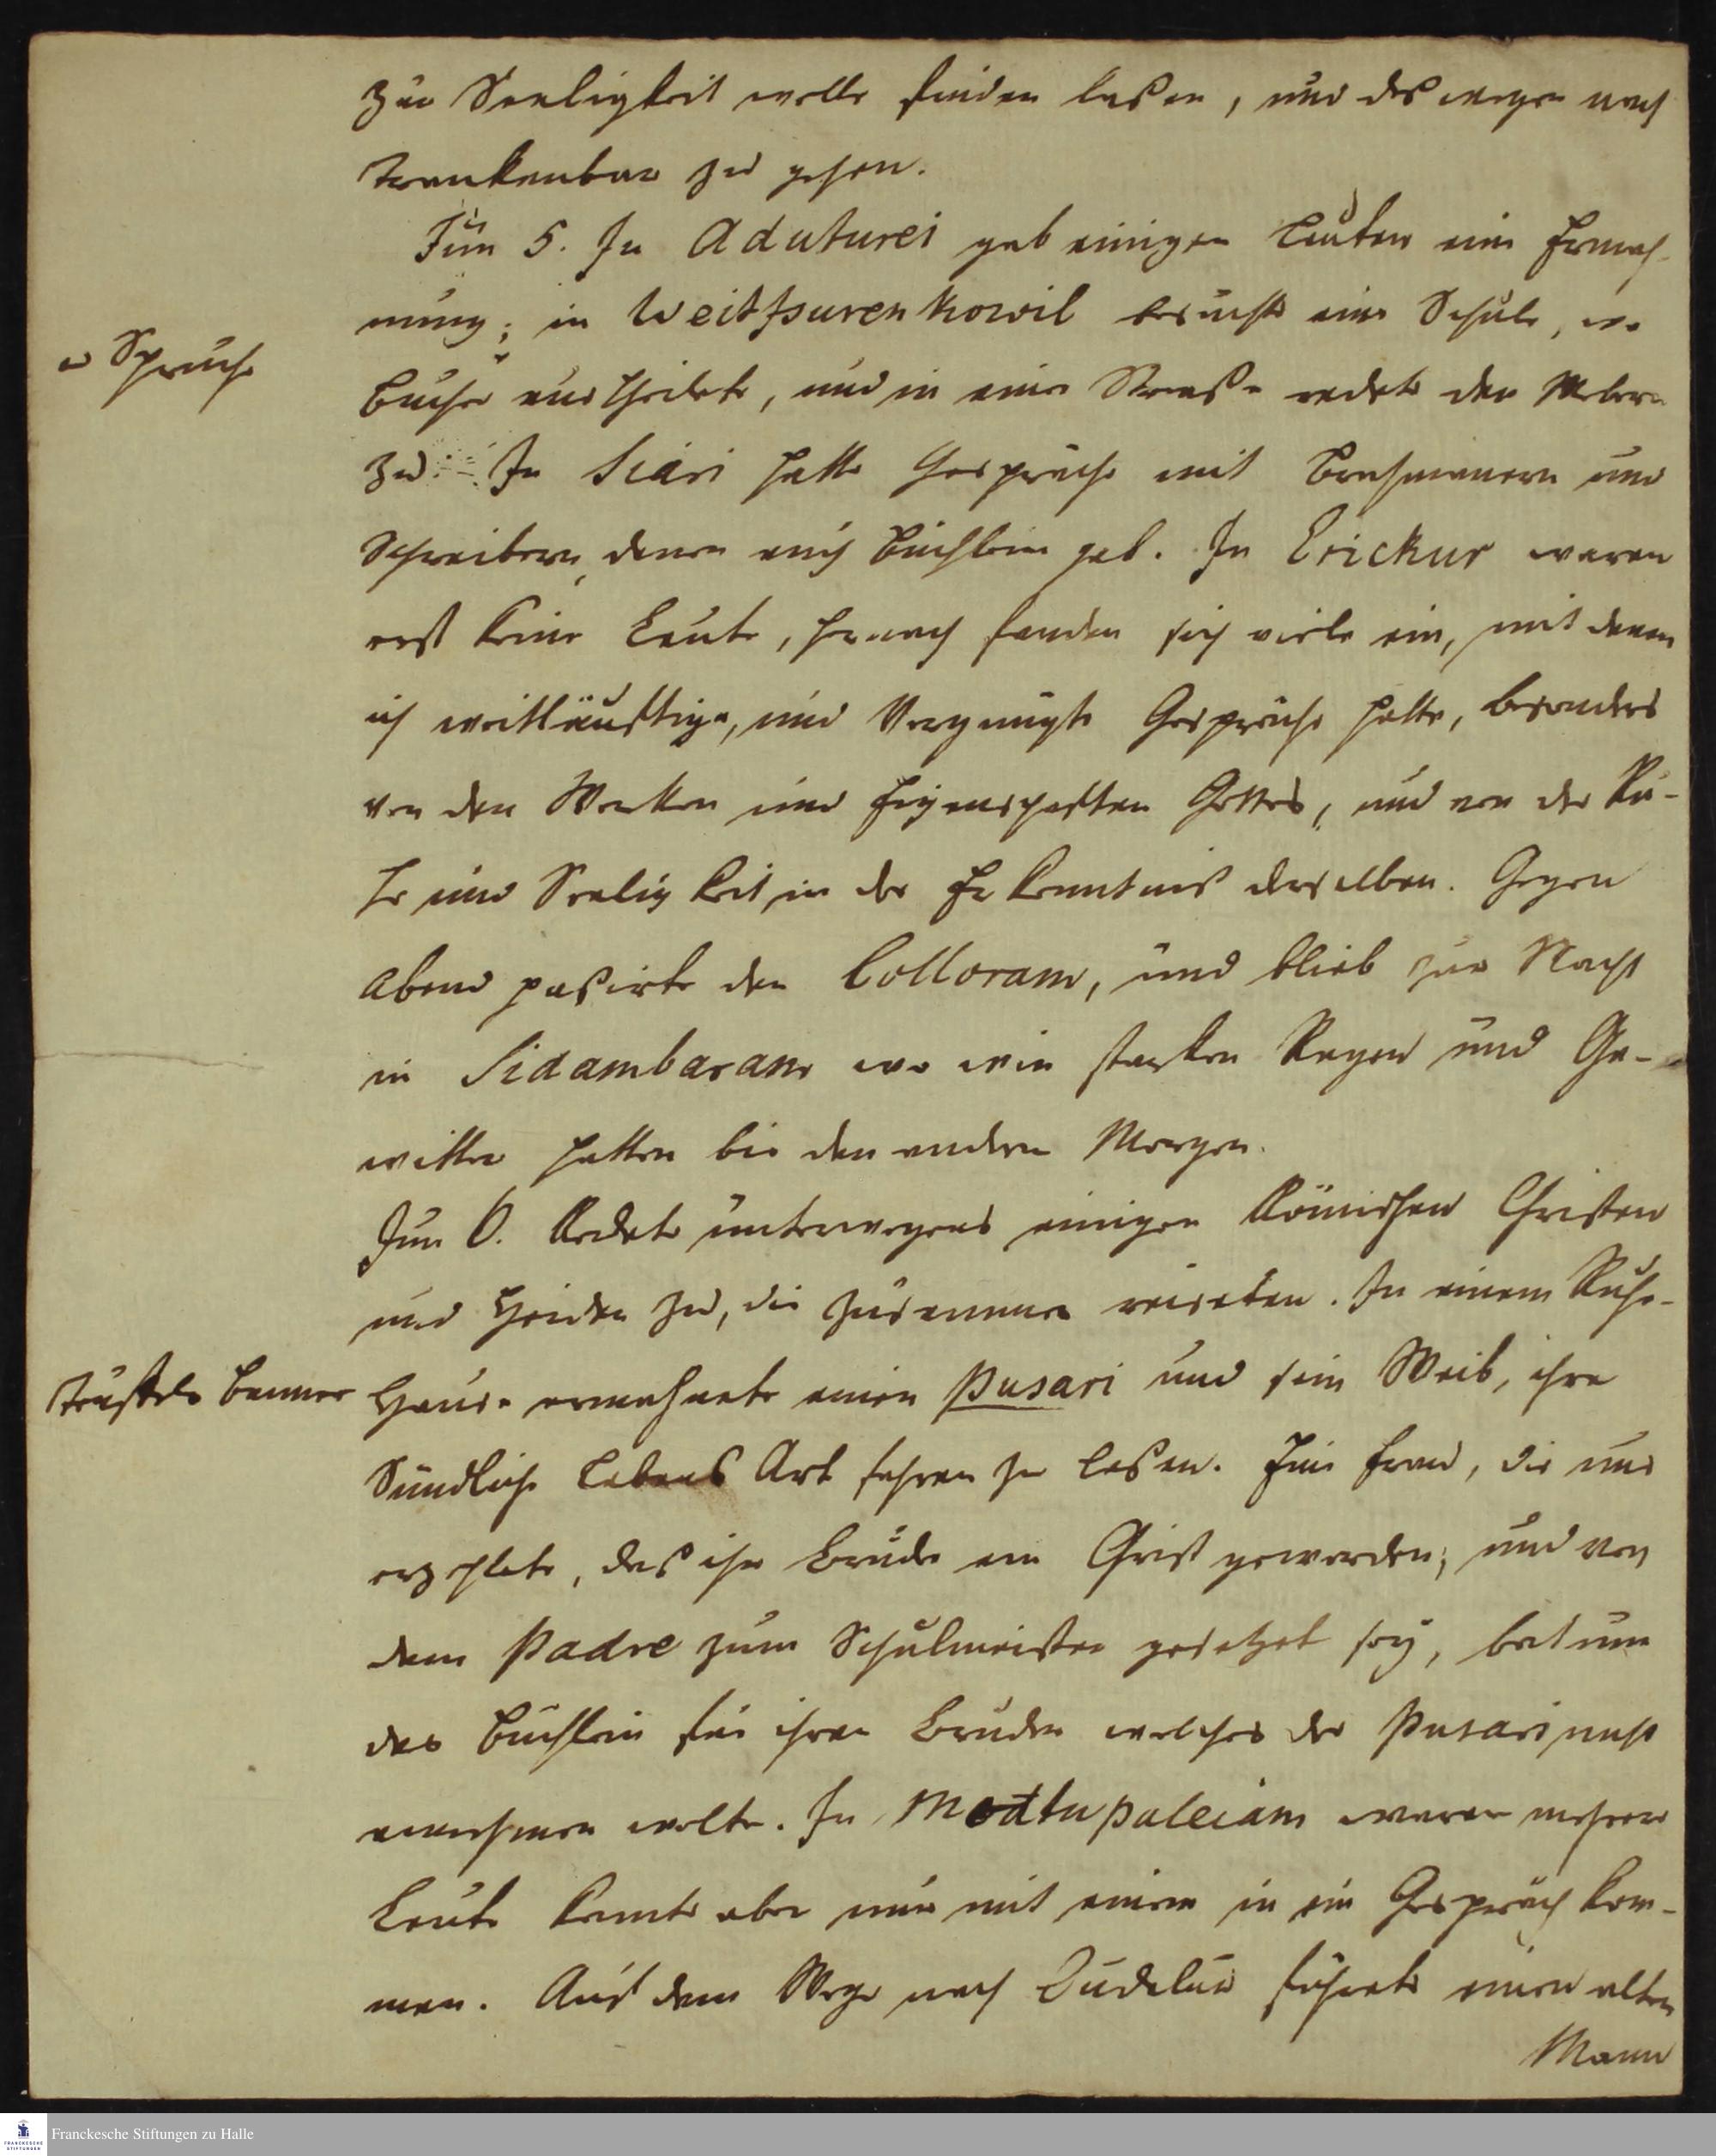 zur Seeligkeit wolle finden laßen, und deswegen nach
Trankenbar zu gehen.
Jun 5. In Aduturei gab einigen Leuten eine Ermah-
nung; in Weitfsurenkowil besuchte eine Schule, wo
u Sprüche
Bücher austheilete, und in einer Straße redete den Webern
zu. In Siari hatte Gespräche mit Brahmanern und
Schreibern, denen auch Büchlein gab. In Erickur waren
erst keine Leute, hernach fanden sich viele ein, mit denen
ich weitläuftige, und vergnügte Gespräche hatte, besonders
von den Wercken und Eigenschafften Gottes, und von der Ru-
he und Seeligkeit in der Erkenntniß derselben. Gegen
Abend paßirte den Colloram, und blieb zur Nacht
in Sidambaram wo wir starken Regen und Ge-
witter hatten bis den andern Morgen.
Jun 6. Redete unterwegens einigen Römischen Christen
und Heiden zu, die zusammen reiseten. In einem Ruhe-
Teufels Banner
Hause ermahnete einen Pusari und sein Weib, ihre
Sündliche Lebens Art fahren zu laßen. Eine Frau, die uns
erzehlete, daß ihr Bruder ein Christ geworden, und von
dem Padre zum Schulmeister gesetzet sey, bat um
das Büchlein für ihren Bruder welches der Pusari nicht
annehmen wolte. In Modtupaleiam waren mehrere
Leute konnte aber nur mit einem in ein Gespräch kom-
men. Auf dem Wege nach Cudelur führete einen alten
Mann
Franckesche Stiftungen zu Halle